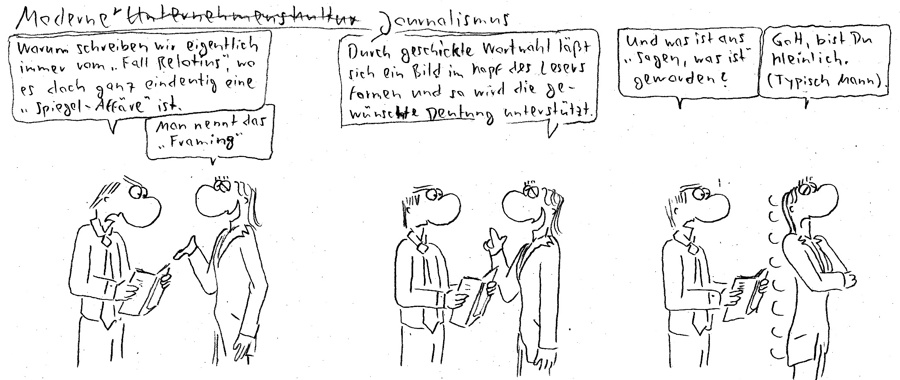 Moderner Unternehmenskultur Journalismus
Warum schreiben wir eigentlich
immer vom „Fall Relotius“, wo
es doch ganz eindeutig eine
„Spiegel-Affäre“ ist.
Man nennt das
„Framing“
Durch geschickte Wortwahl läßt
sich ein Bild im Kopf des Lesers
formen und so wird die ge-
wünschte Deutung unterstützt.
Und was ist aus
„Sagen, was ist“
geworden?
Gott, bist Du
kleinlich.
(Typisch Mann).